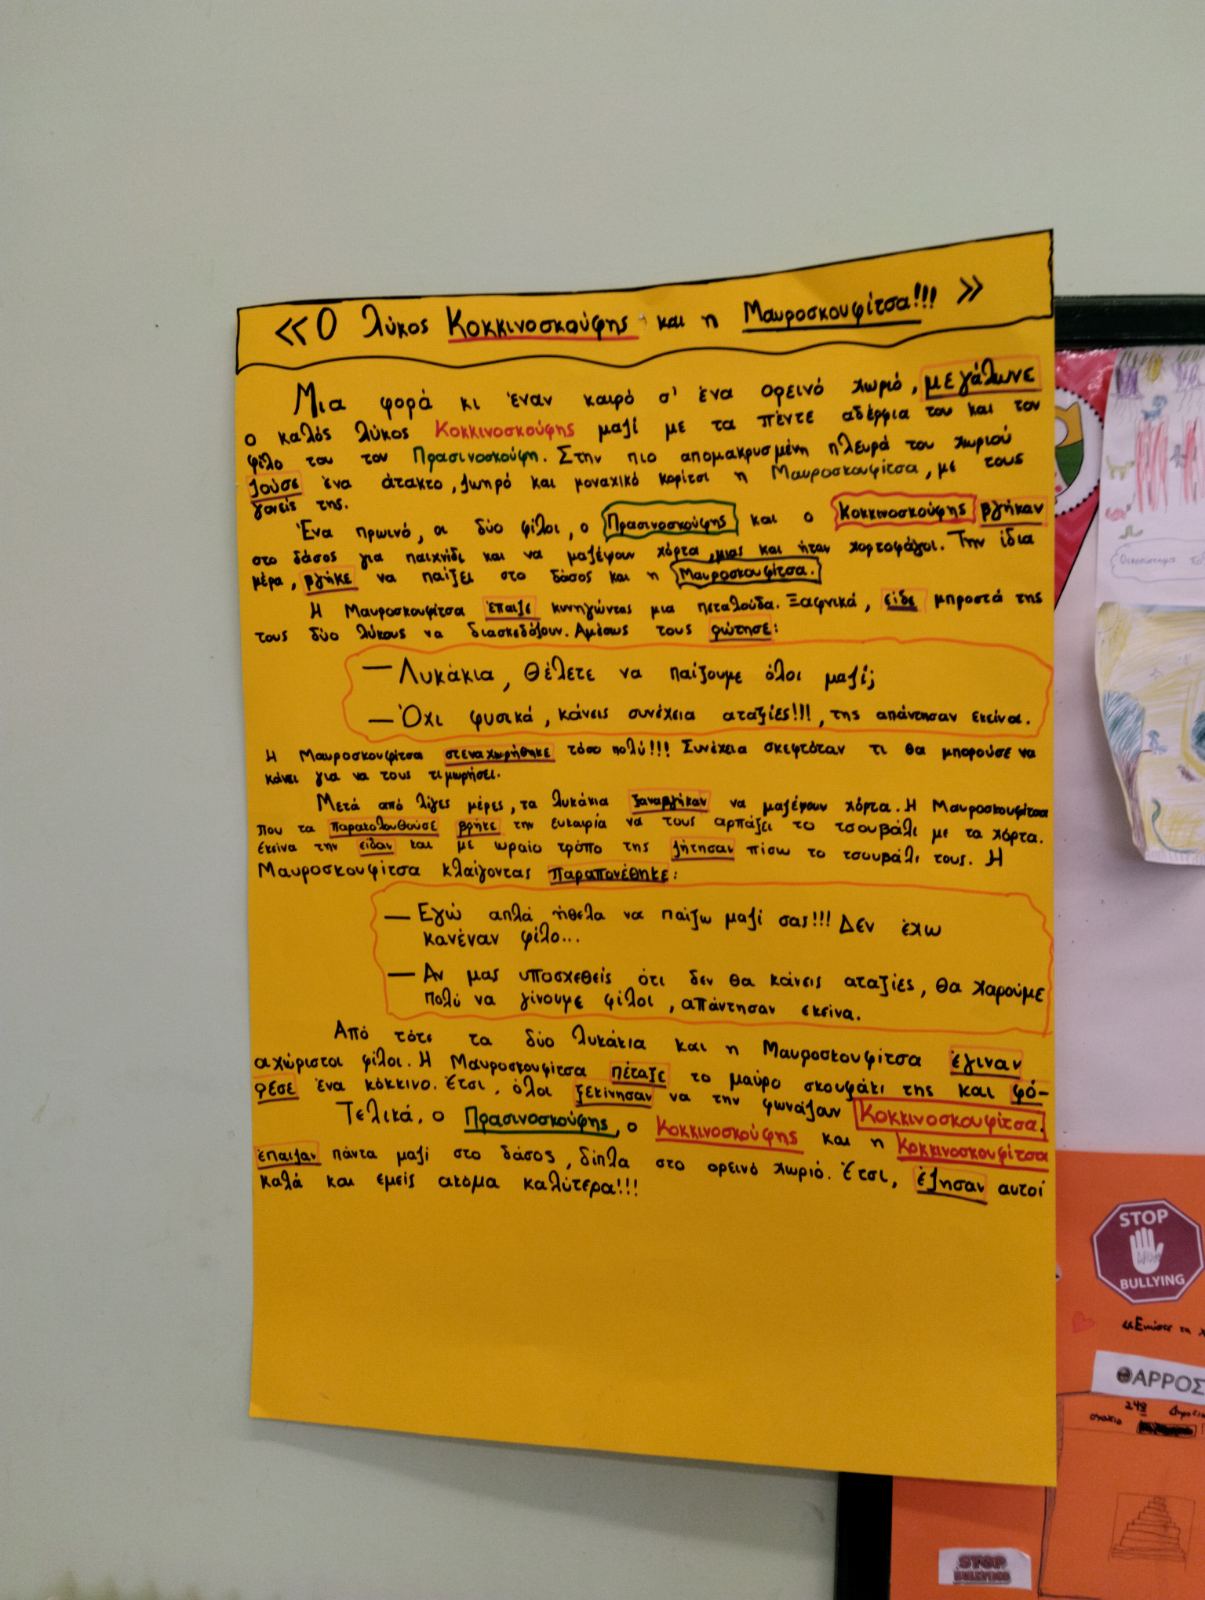 «Ο λύκος Κοκκινοσκούφης και η Μαυροσκουφίτσα!!!»
Μια φορά κι έναν καιρό σ' ένα ορεινό χωριό, μεγάλωνε
ο καλός λύκος Κοκκινοσκούφης μαζί με τα πέντε αδέρφια του και τον
φίλο του τον Πρασινοσκούφη. Στην πιο απομακρυσμένη πλευρά του χωριού
ζούσε ένα άτακτο, ζωηρό και μοναχικό κορίτσι η Μαυροσκουφίτσα, με τους
γονείς της.
Ένα πρωινό, οι δύο φίλοι, ο Πρασινοσκούφης και ο Κοκκινοσκούφης βγήκαν
στο δάσος για παιχνίδι και να μαζέψουν χόρτα, μιας και ήταν χορτοφάγοι. Την ίδια
μέρα, βγήκε να παίξει στο δάσος και η Μαυροσκουφίτσα.
Η Μαυροσκουφίτσα έπαιζε κυνηγώντας μια πεταλούδα. Ξαφνικά, είδε μπροστά της
τους δύο λύκους να διασκεδάζουν. Αμέσως τους ρώτησε:
– Λυκάκια, θέλετε να παίξουμε όλοι μαζί;
– Όχι φυσικά, κάνεις συνέχεια αταξίες!!!, της απάντησαν εκείνα.
Η Μαυροσκουφίτσα στεναχωρήθηκε τόσο πολύ!!! Συνέχεια σκεφτόταν τι θα μπορούσε να
κάνει για να τους τιμωρήσει.
Μετά από λίγες μέρες, τα λυκάκια ξαναβγήκαν να μαζέψουν χόρτα. Η Μαυροσκουφίτσα
που τα παρακολουθούσε βρήκε την ευκαιρία να τους αρπάξει το τσουβάλι με τα χόρτα.
Εκείνα την είδαν και με ωραίο τρόπο της ζήτησαν πίσω το τσουβάλι τους. Η
Μαυροσκουφίτσα κλαίγοντας παραπονέθηκε:
– Εγώ απλά ήθελα να παίξω μαζί σας!!! Δεν έχω
κανέναν φίλο...
– Αν μας υποσχεθείς ότι δεν θα κάνεις αταξίες, θα χαρούμε
πολύ να γίνουμε φίλοι, απάντησαν εκείνα.
Από τότε τα δύο λυκάκια και η Μαυροσκουφίτσα έγιναν
αχώριστοι φίλοι. Η Μαυροσκουφίτσα πέταξε το μαύρο σκουφάκι της και φό-
ρεσε ένα κόκκινο. Έτσι, όλοι ξεκίνησαν να την φωνάζουν Κοκκινοσκουφίτσα.
Τελικά, ο Πρασινοσκούφης, ο Κοκκινοσκούφης και η Κοκκινοσκουφίτσα
έπαιζαν πάντα μαζί στο δάσος, δίπλα στο ορεινό χωριό. Έτσι, έζησαν αυτοί
καλά και εμείς ακόμα καλύτερα!!!
STOP
BULLYING
ΘΑΡΡΟΣ
STOP
BULLYING